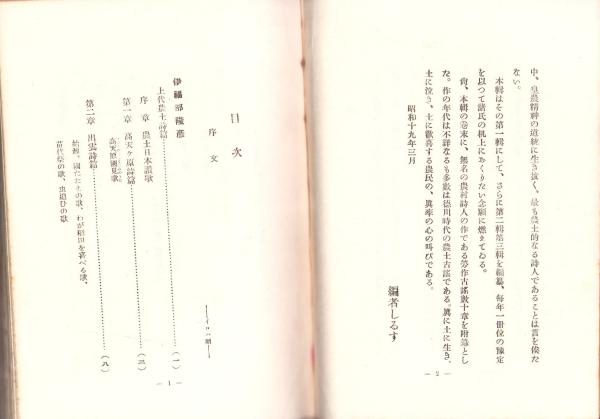 中、皇農精神の道統に生き抜く、最も農土的なる詩人であることは言を俟た
ない。
本輯はその第一輯にして、さらに第二輯第三輯を編纂、毎年一冊位の豫定
を以つて諸氏の机上におくりたい念願に燃えてゐる。
尙、本輯の卷末に、無名の農村詩人の作である勞作古謠數十章を附錄とし
た。作の年代は不詳なるも多數は德川時代の農土古謠である。眞に土に生き、
土に泣き、土に歡喜する農民の、眞率の心の叫びである。
昭和十九年三月
編者しるす
— 2 —
目次
序文
——イロハ順——
伊福部隆彥
上代農土詩篇……(一)
序章 農土日本讃歌
第一章 高天ヶ原詩篇……(三)
高天原國見歌
第二章 出雲詩篇……(八)
始源、國たたえの歌、わが稻田を喜べる歌、
苗代祭の歌、虫追ひの歌
— 1 —